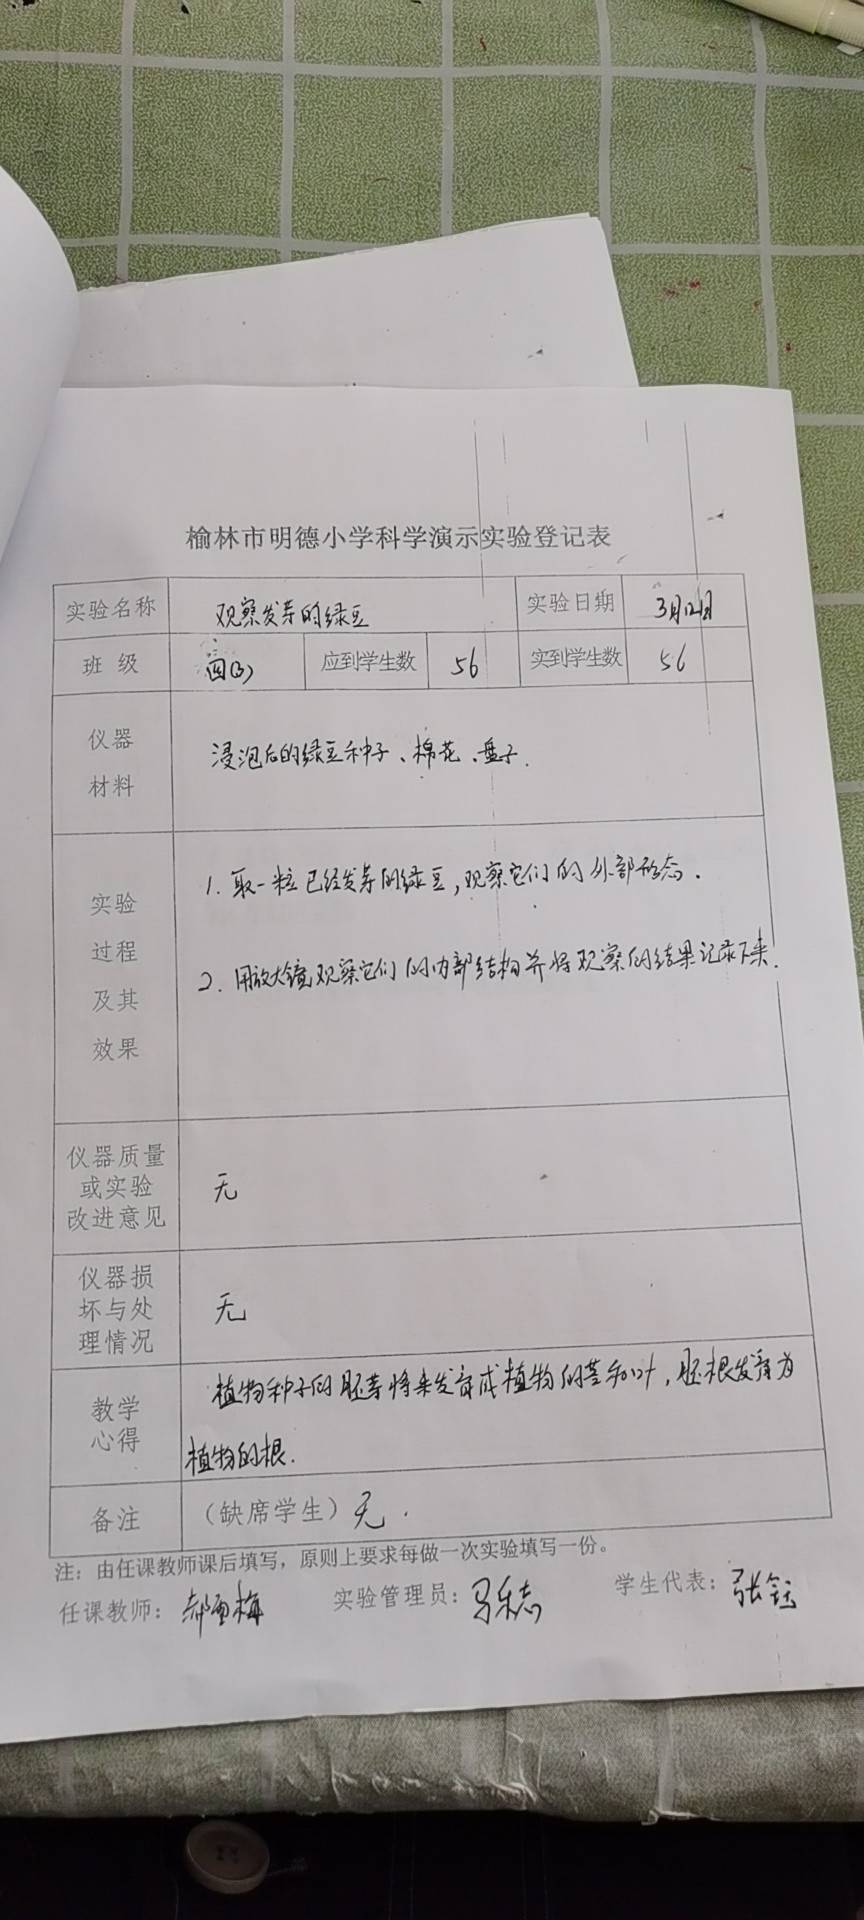 榆林市明德小学科学演示实验登记表
实验名称 观察发芽的绿豆 实验日期 3月12日
班 级 四(3) 应到学生数 56 实到学生数 56
仪器
材料
浸泡后的绿豆种子、棉花、盘子.
实验
过程
及其
效果
1. 取一粒已经发芽的绿豆,观察它们的外部形态.
2. 用放大镜观察它们的内部结构并将观察的结果记录下来.
仪器质量
或实验
改进意见
无
仪器损
坏与处
理情况
无
教学
心得
植物种子的胚芽将来发育成植物的茎和叶,胚根发育为
植物的根.
备注 (缺席学生) 无.
注: 由任课教师课后填写, 原则上要求每做一次实验填写一份。
任课教师: 实验管理员: 学生代表: